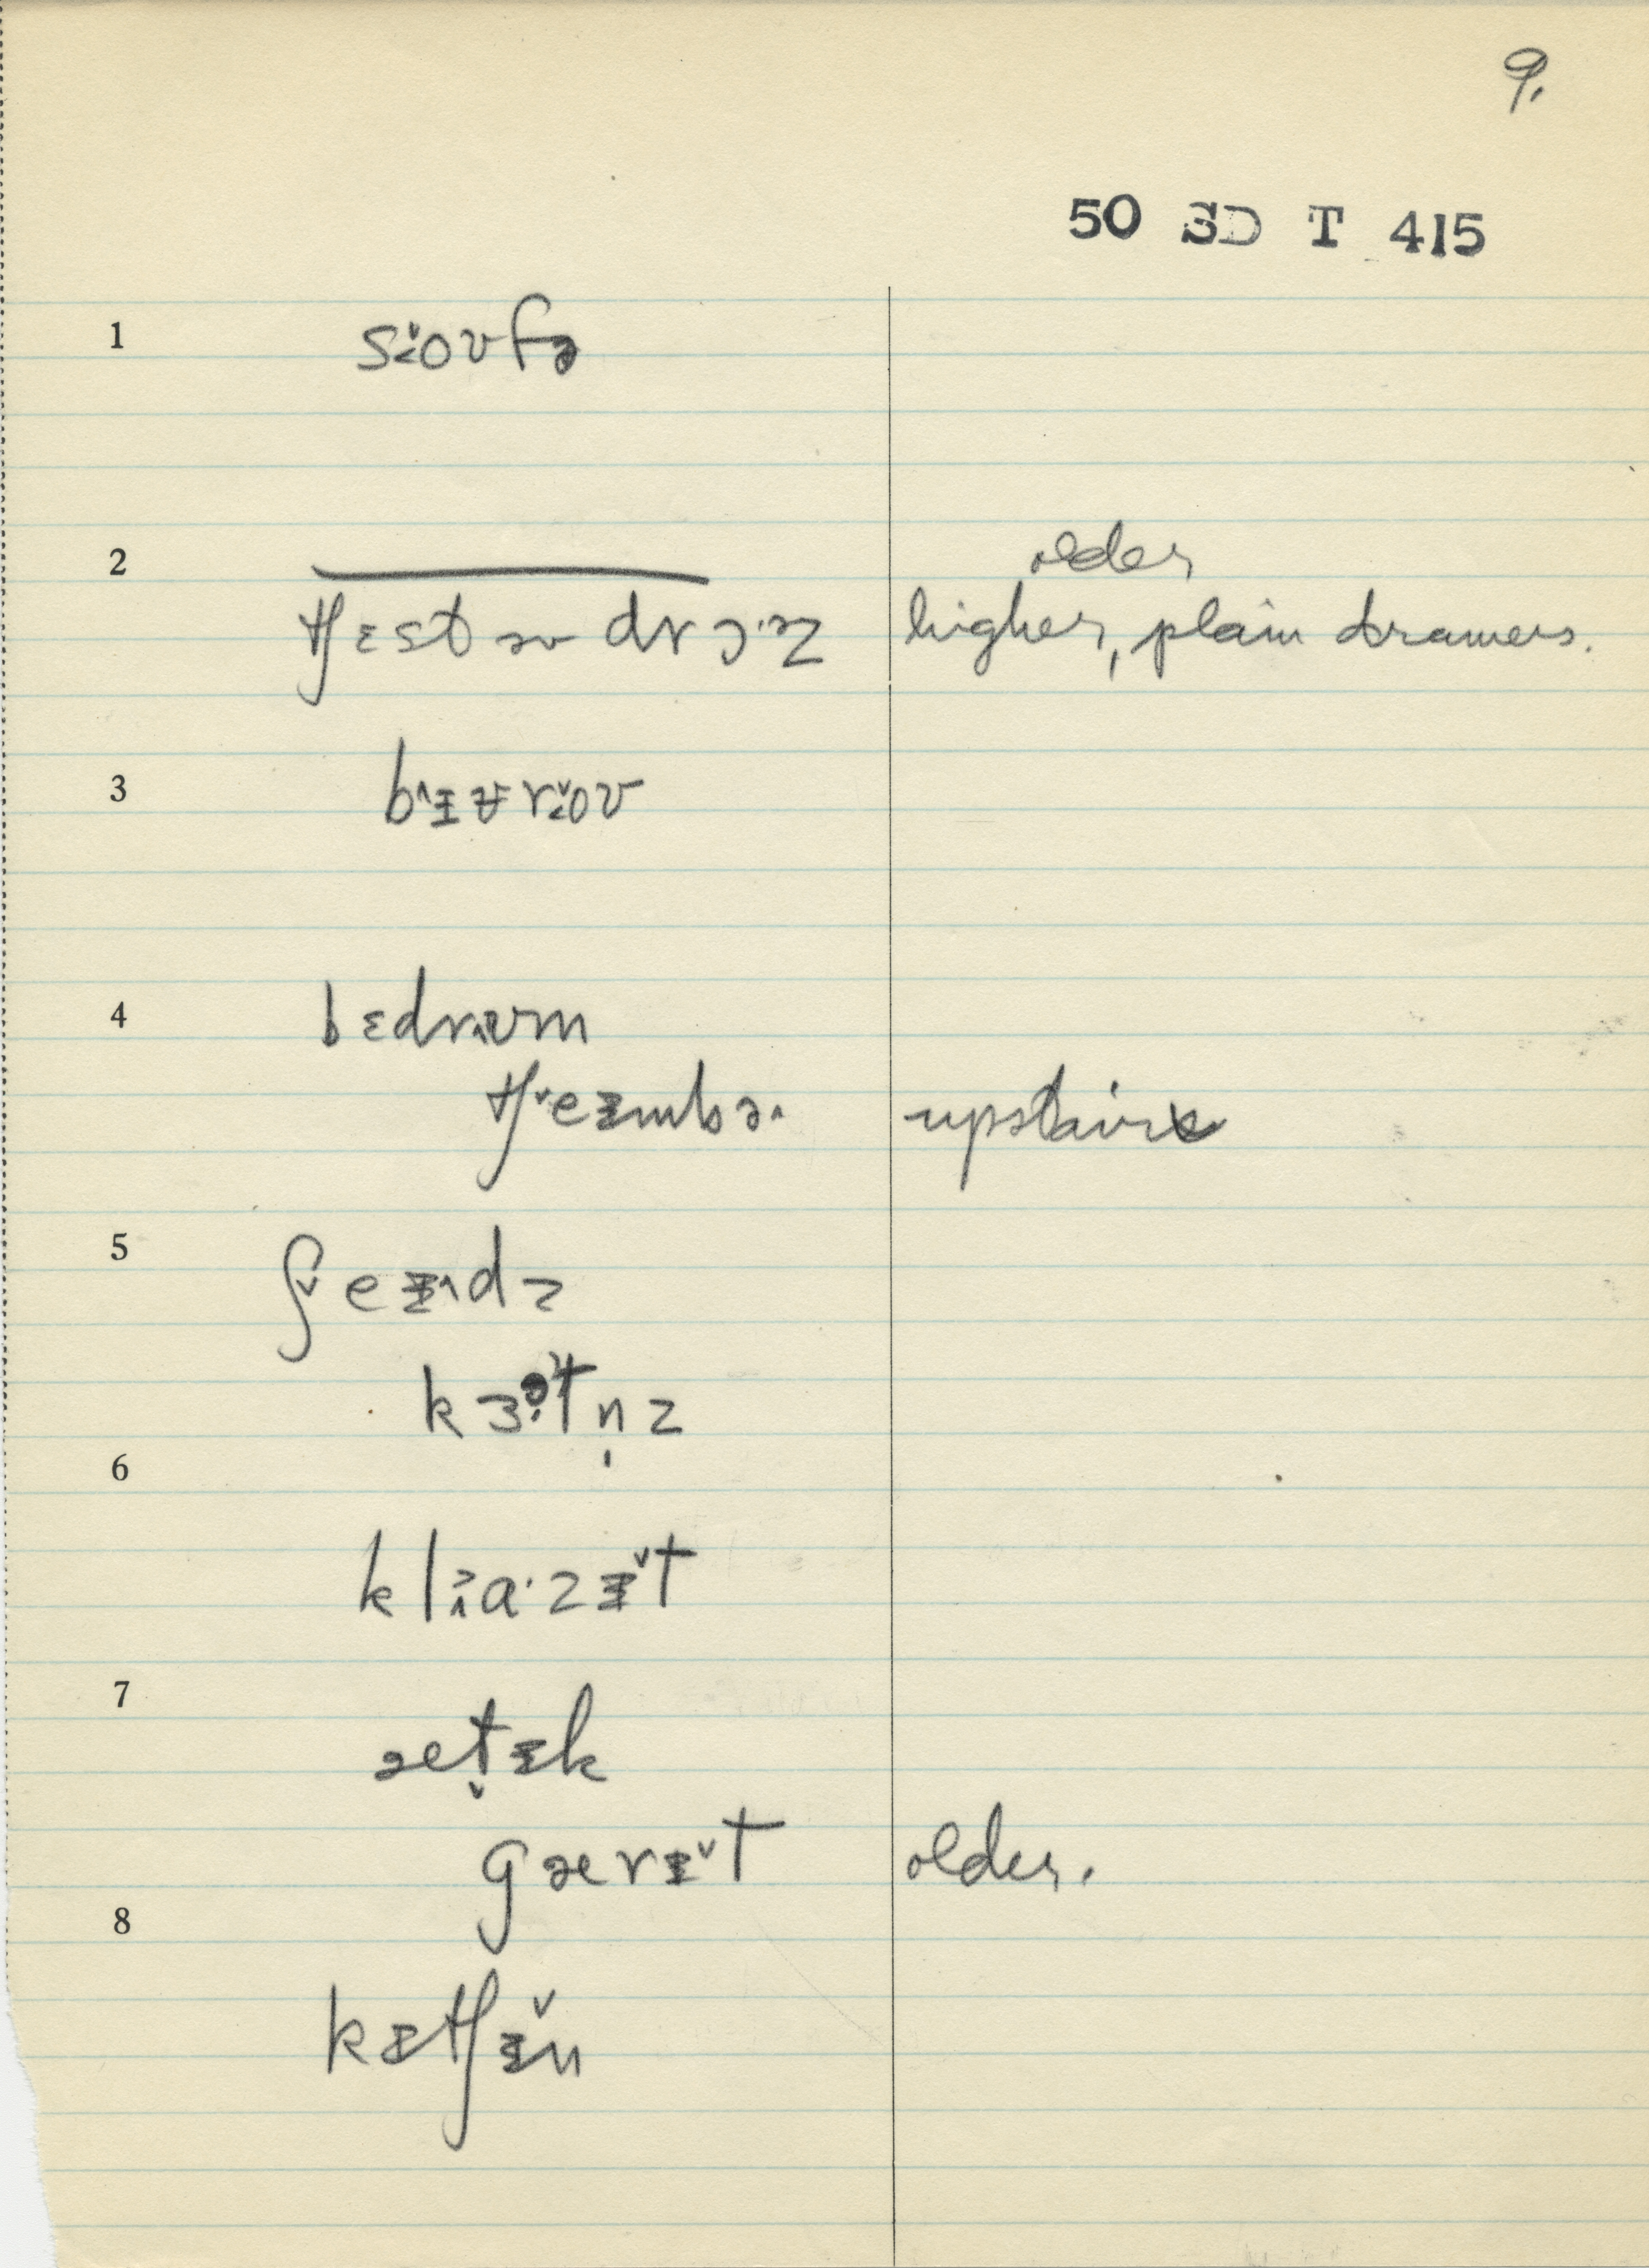 9.
50 SD T 415
1 soʊfə
2 older
tʃɛst əv drɔ·ɚz higher, plain drawers.
3 bɪʊroʊ
4 bɛdrʊm
tʃeɪmbə upstairs
5 ʃeɪdz
kɜtn̩z
6
klɑ·zɪt
7
ætɪk
gærɪt older.
8
kɪtʃɪn